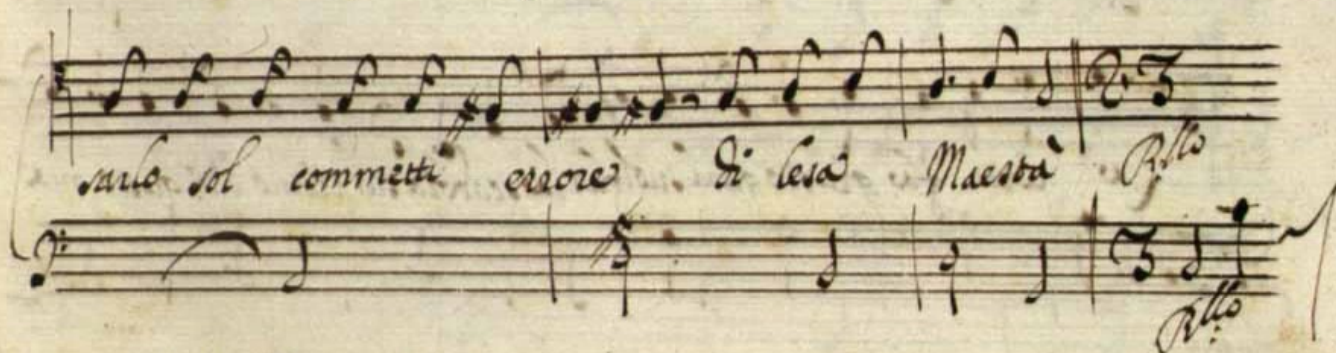 sarlo sol commetti errore di lesa Maestà Rllo
Rllo